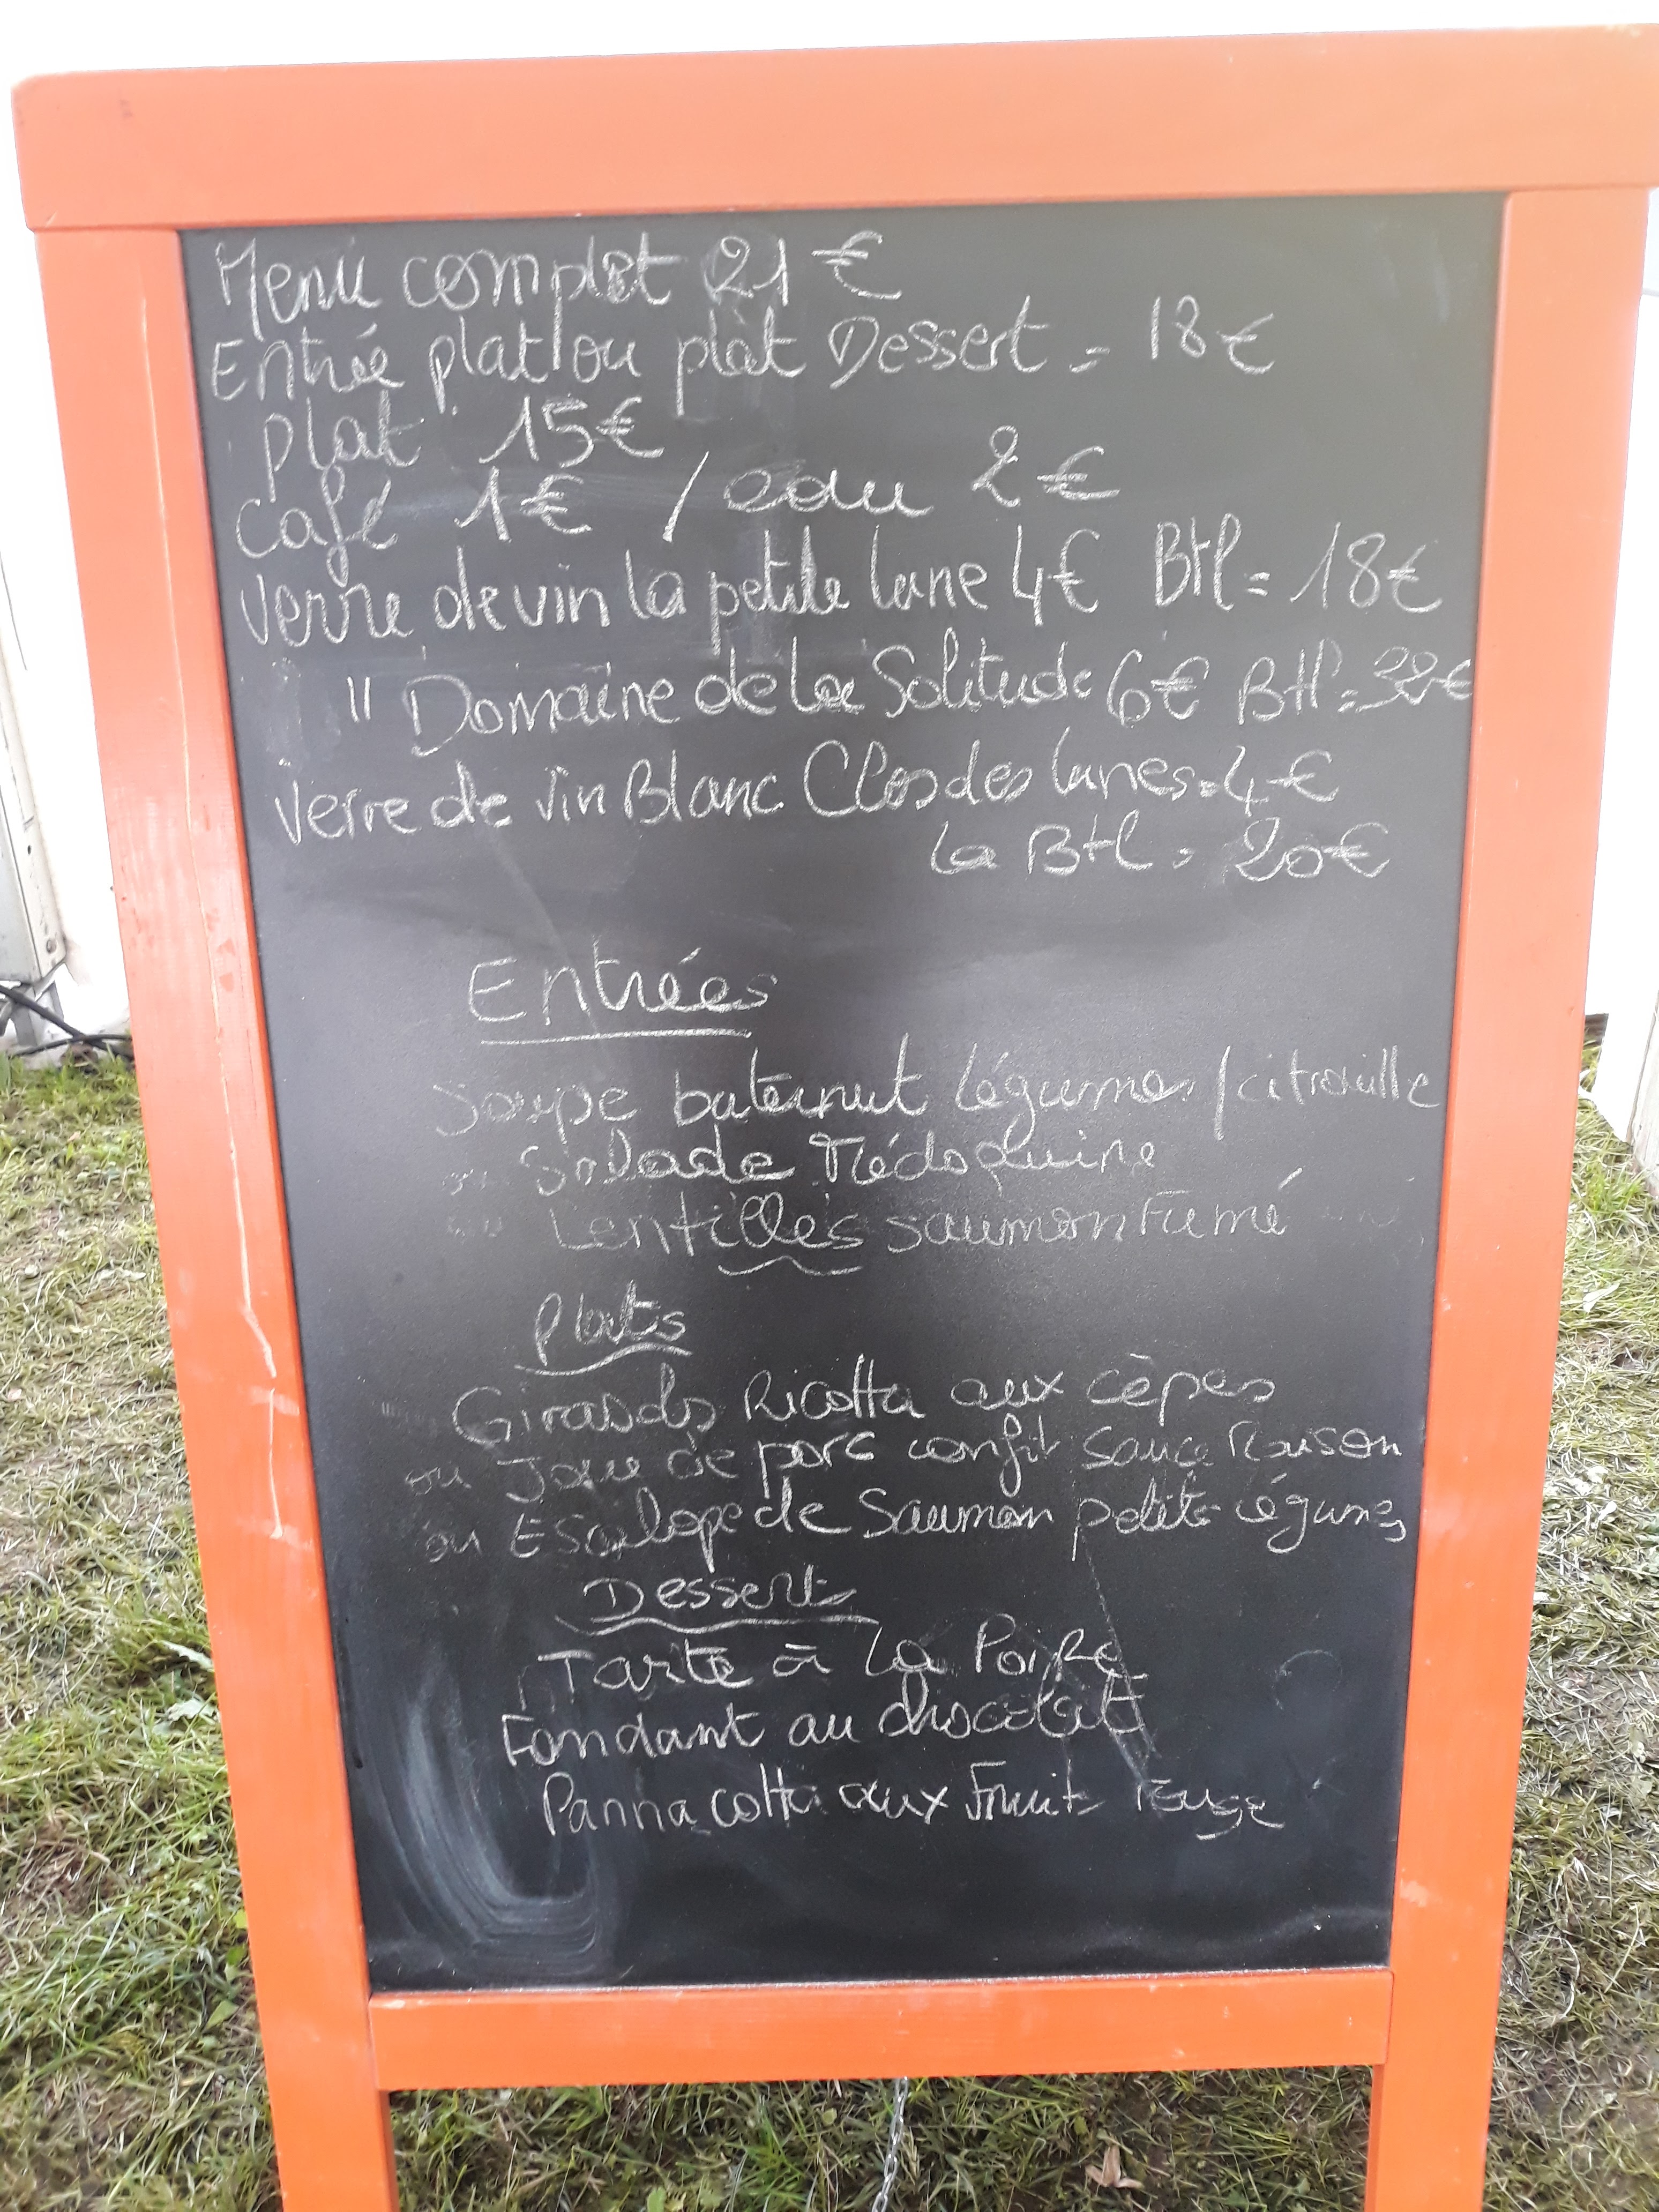 Menu complet 21 €
Entrée plat/ou plat Dessert = 18€
plat 15€
café 1€ / eau 2€
Verre de vin la petite lune 4€ Btl = 18€
" Domaine de la Solitude 6€ Btl =
verre de vin Blanc Clos des lunes = 4€
la Btl = 20€
Entrées
Soupe buternut légumes / citrouille
ou Salade Médoquine
ou Lentilles saumon Fumé
Plats
Girasols Ricotta aux cèpes
ou Joue de porc confit sauce Raison
ou Escalope de Saumon petits légumes
Dessert
Tarte à la Poire
Fondant au chocolat
Panna cotta aux Fruits rouge